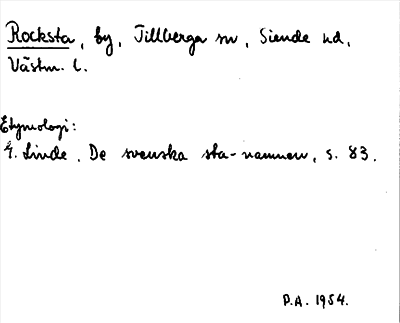 Rocksta, by, Tillberga sn, Siende hd,
Västm. l.
Etymologi:
G. Linde, De svenska sta-namnen, s. 83.
P.A. 1954.